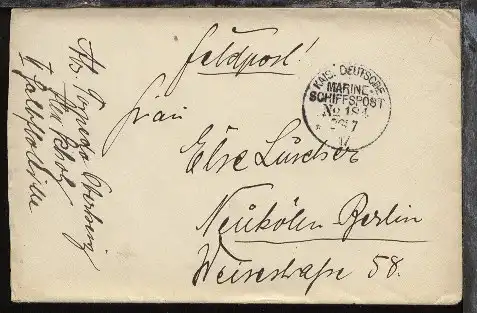 Feldpost!
KAIS. DEUTSCHE
MARINE-
SCHIFFSPOST
No 184
17
Frau
Else Lüscher
Neukölln-Berlin
Weisestraße 58.
Abs. Torpedo